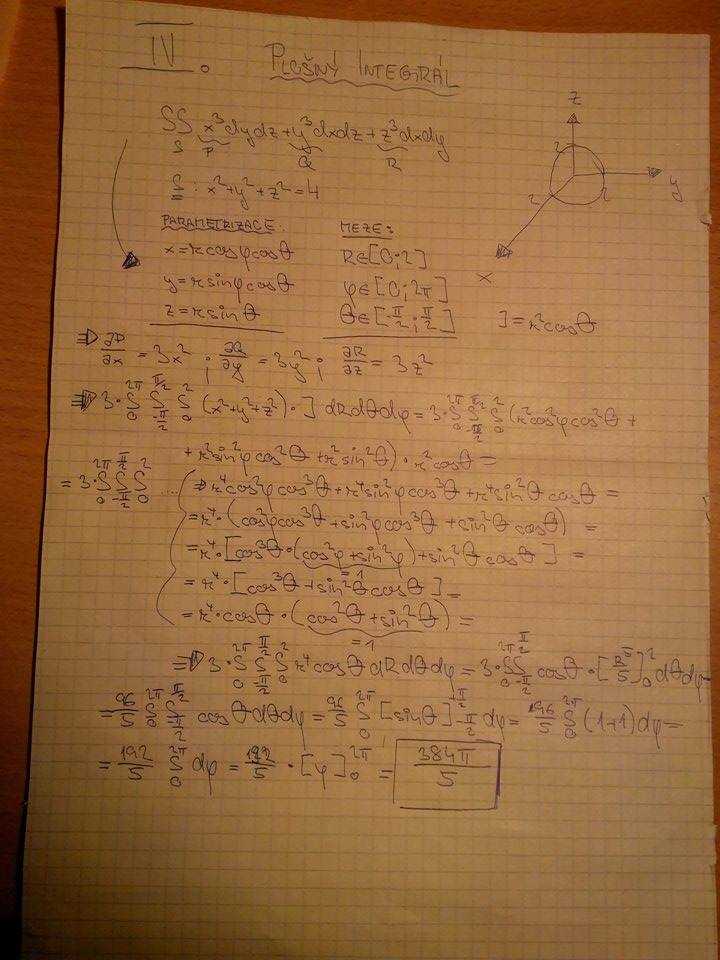 IV.
PLOŠNÝ INTEGRÁL
∬ x³dydz + y³dxdz + z³dxdy
S P Q R
S: x²+y²+z²=4
z
2
2
2
y
x
PARAMETRIZACE: MEZE:
x=r cosφ cosθ R∈[0;2]
y=r sinφ cosθ φ∈[0;2π]
z=r sinθ θ∈[-π/2;π/2] J=r²cosθ
⇒ ∂P/∂x = 3x² ; ∂Q/∂y = 3y² ; ∂R/∂z = 3z²
⇒ 3·∫₀^2π ∫_-π/2^π/2 ∫₀² (x²+y²+z²)·J dRdθdφ = 3·∫₀^2π ∫_-π/2^π/2 ∫₀² (r²cos²φcos²θ +
+ r²sin²φcos²θ + r²sin²θ)·r²cosθ =
= 3·∫₀^2π ∫_-π/2^π/2 ∫₀² ... ⇒ r⁴cos²φcos³θ + r⁴sin²φcos³θ + r⁴sin²θcosθ =
= r⁴·(cos²φcos³θ + sin²φcos³θ + sin²θcosθ) =
= r⁴·[cos³θ·(cos²φ+sin²φ) + sin²θcosθ] =
= 1
= r⁴·[cos³θ + sin²θcosθ] =
= r⁴·cosθ·(cos²θ + sin²θ) =
= 1
⇒ 3·∫₀^2π ∫_-π/2^π/2 ∫₀² r⁴cosθ dRdθdφ = 3·∫₀^2π ∫_-π/2^π/2 cosθ·[R⁵/5]₀² dθdφ =
= 96/5 ∫₀^2π ∫_-π/2^π/2 cosθdθdφ = 96/5 ∫₀^2π [sinθ]_-π/2^π/2 dφ = 96/5 ∫₀^2π (1+1)dφ =
= 192/5 ∫₀^2π dφ = 192/5 · [φ]₀^2π = 384π/5